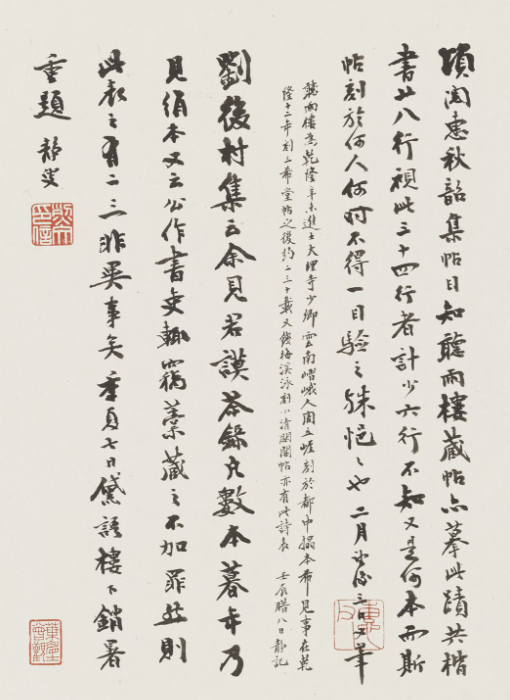 頃閱惠秋韶集帖目知聽雨樓藏帖亦摹此蹟共楷
書廿八行視此三十四行者計少六行不知又是何本而斯
帖刻於何人何時不得一目驗之殊悒〻也 二月三日又筆
聽雨樓為乾隆辛未進士大理寺少卿雲南嶍峨人周立崖刻於都中搨本希見事在乾
隆十二年刻三希堂帖之後約二三十載又錢梅溪泳刻小清閟閣帖亦有此詩表 壬辰腊八日靜記
劉後村集云余見君謨茶錄凡數本暮年乃
見絹本又云公作書吏輒竊藁藏之不加罪然則
此表之有二三非異事矣 七日黛語樓下銷暑
重題 靜叟